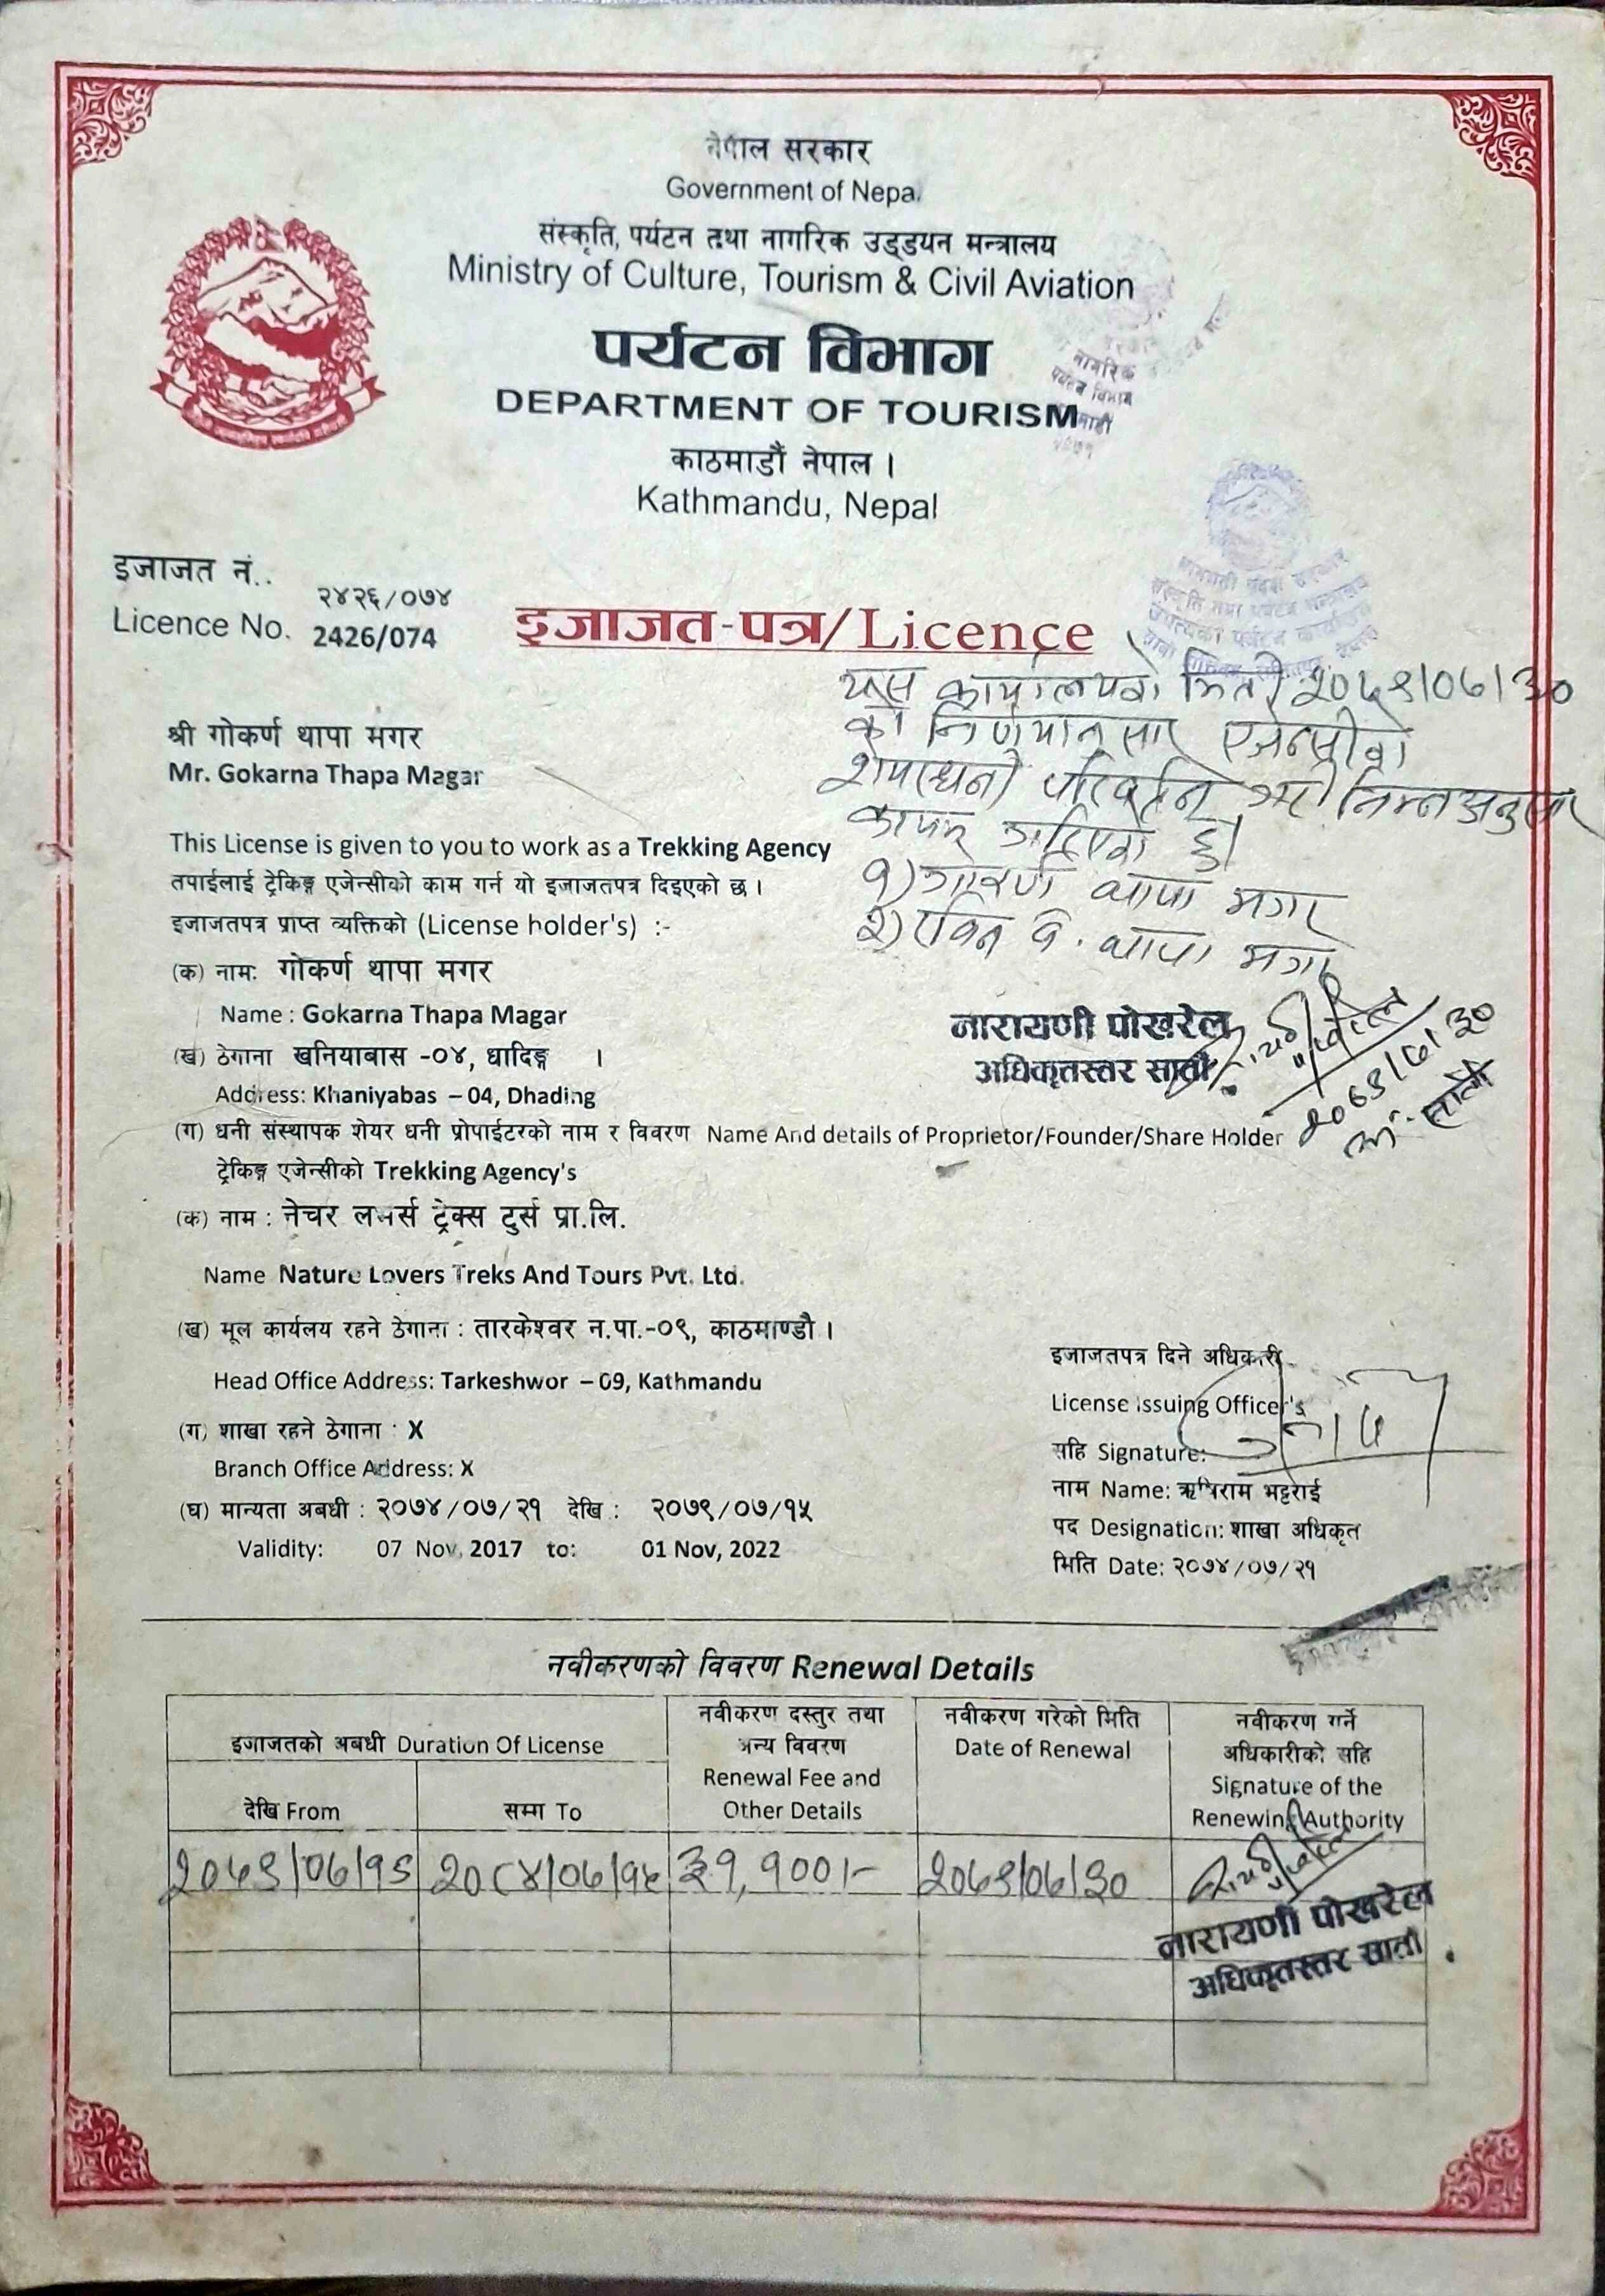 नेपाल सरकार
Government of Nepal
संस्कृति, पर्यटन तथा नागरिक उड्डयन मन्त्रालय
Ministry of Culture, Tourism & Civil Aviation
पर्यटन विभाग
DEPARTMENT OF TOURISM
काठमाडौं नेपाल ।
Kathmandu, Nepal
नागरिक
पर्यटन विभाग
इजाजत नं..
२४२६/०७४
Licence No. 2426/074
इजाजत-पत्र/Licence
यस कार्यालयको मिति २०७९/०७/३०
को निर्णयानुसार एजेन्सीको
शेयरधनी परिवर्तन भई निम्नअनुसार
कायम गरिएको छ।
१) गोकर्ण थापा मगर
२) रविन ब. थापा मगर
नारायणी पोखरेल
अधिकृतस्तर सातौं
२०७९/७/३०
श्री गोकर्ण थापा मगर
Mr. Gokarna Thapa Magar
This License is given to you to work as a Trekking Agency
तपाईलाई ट्रेकिङ्ग एजेन्सीको काम गर्न यो इजाजतपत्र दिइएको छ ।
इजाजतपत्र प्राप्त व्यक्तिको (License holder's) :-
(क) नामः गोकर्ण थापा मगर
Name : Gokarna Thapa Magar
(ख) ठेगाना खनियाबास -०४, धादिङ्ग ।
Address: Khaniyabas – 04, Dhading
(ग) धनी संस्थापक शेयर धनी प्रोपाईटरको नाम र विवरण Name And details of Proprietor/Founder/Share Holder
ट्रेकिङ्ग एजेन्सीको Trekking Agency's
(क) नाम : नेचर लभर्स ट्रेक्स टुर्स प्रा.लि.
Name Nature Lovers Treks And Tours Pvt. Ltd.
(ख) मूल कार्यलय रहने ठेगाना : तारकेश्वर न.पा.-०९, काठमाण्डौ ।
Head Office Address: Tarkeshwor – 09, Kathmandu
(ग) शाखा रहने ठेगाना : X
Branch Office Address: X
(घ) मान्यता अबधी : २०७४/०७/२१ देखि : २०७९/०७/१५
Validity: 07 Nov, 2017 to: 01 Nov, 2022
इजाजतपत्र दिने अधिकारी
License Issuing Officer's
सहि Signature:
नाम Name: ऋषिराम भट्टराई
पद Designation: शाखा अधिकृत
मिति Date: २०७४/०७/२१
नवीकरणको विवरण Renewal Details
इजाजतको अबधी Duration Of License
देखि From
सम्म To
नवीकरण दस्तुर तथा
अन्य विवरण
Renewal Fee and
Other Details
नवीकरण गरेको मिति
Date of Renewal
नवीकरण गर्ने
अधिकारीको सहि
Signature of the
Renewing Authority
२०७९/०७/१६ २०८४/०७/१५ ३१,१००/- २०७९/०७/३०
नारायणी पोखरेल
अधिकृतस्तर सातौं